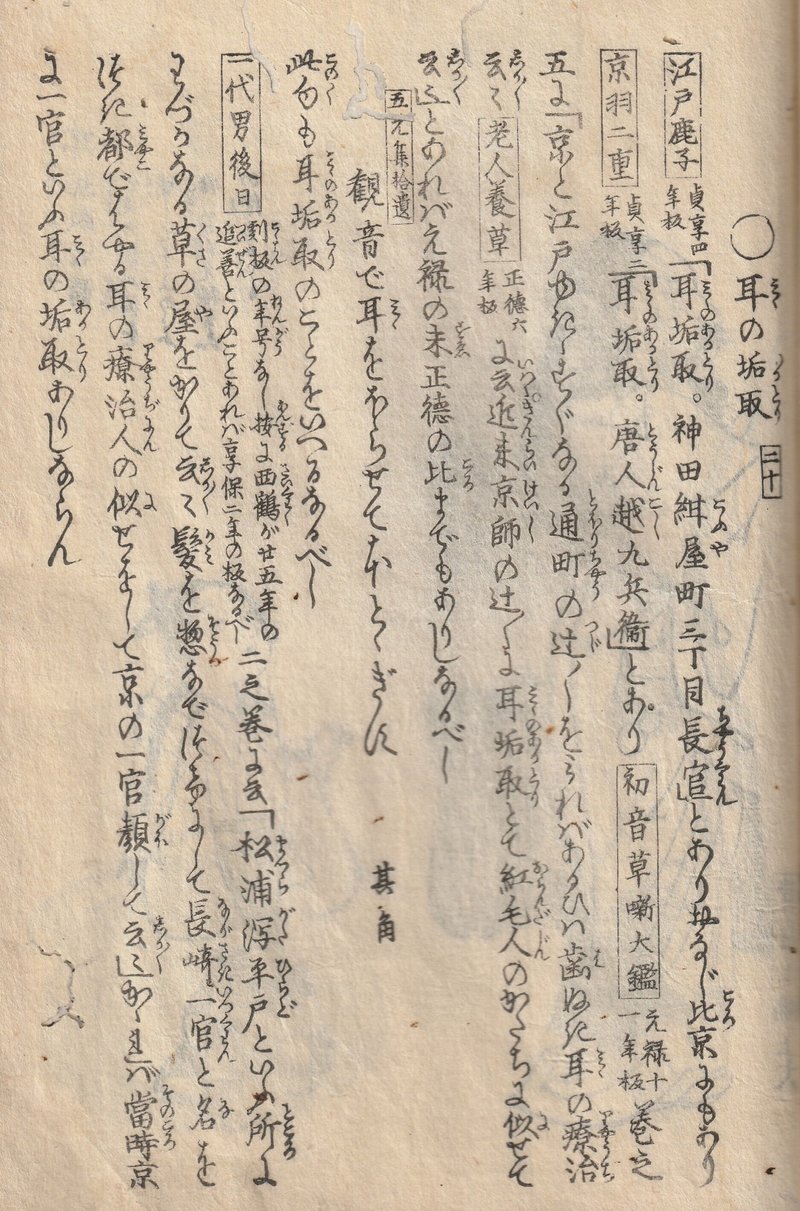 ○耳の垢取 二十
江戸鹿子 貞享四年板「耳垢取。神田紺屋町三丁目長官」とありおなじ比京にもあり
京羽二重 貞享二年板「耳垢取。唐人越九兵衛」とあり 初音草噺大鑑 元禄十一年板 巻之
五に「京と江戸
通町の辻〳〵をみればあるひは歯ぬき耳の療治
云々 老人養草 正徳六年板 に云近来京師の辻〳〵に耳垢取とて紅毛人のかたちに似せて
云々」とあれば元禄の末正徳の比までもありしなるべし
五元集拾遺
観音で耳をほらせてほとゝぎす 其角
此句も耳垢取のことをいへるなるべし
一代男後日 割板の年号なし按に西鶴が廿五年の追善といふことあれば享保二年の板なるべし 二之巻に云「松浦潟平戸といふ所に
わづかなる草の屋をかりて云々髪を惣なでつけにして長崎一官と名を
つき都ではやる耳の療治人の似せをして京の一官顔して云々」かゝれば當時京
に一官といふ耳の垢取ありしならん